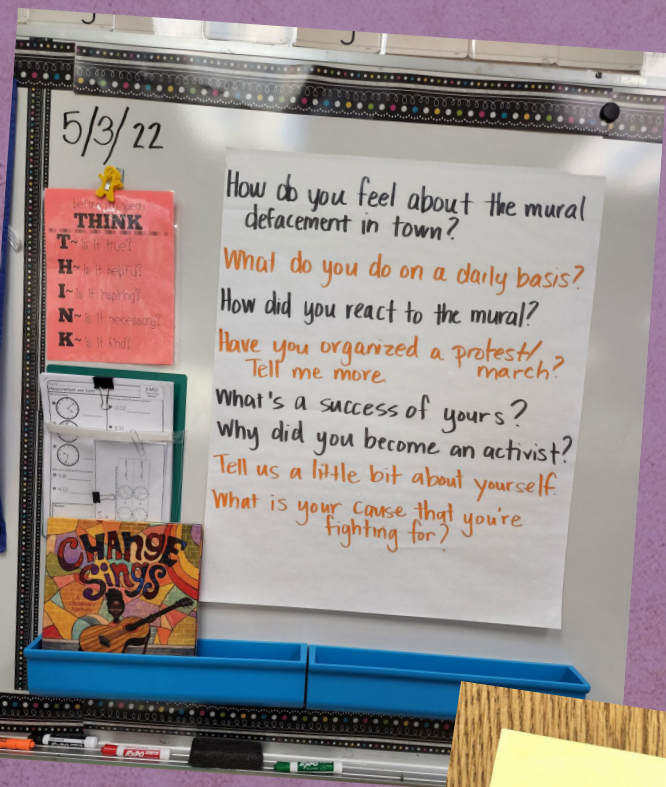 5/3/22
before you speak
THINK
T~ Is it true?
H~ Is it helpful?
I~ Is it inspiring?
N~ Is it necessary?
K~ Is it kind?
CHANGE
Sings
A
Children's
Anthem
How do you feel about the mural
defacement in town?
What do you do on a daily basis?
How did you react to the mural?
Have you organized a protest/
Tell me more. march?
What's a success of yours?
Why did you become an activist?
Tell us a little bit about yourself.
What is your cause that you're
fighting for?
EXPO
EXPO